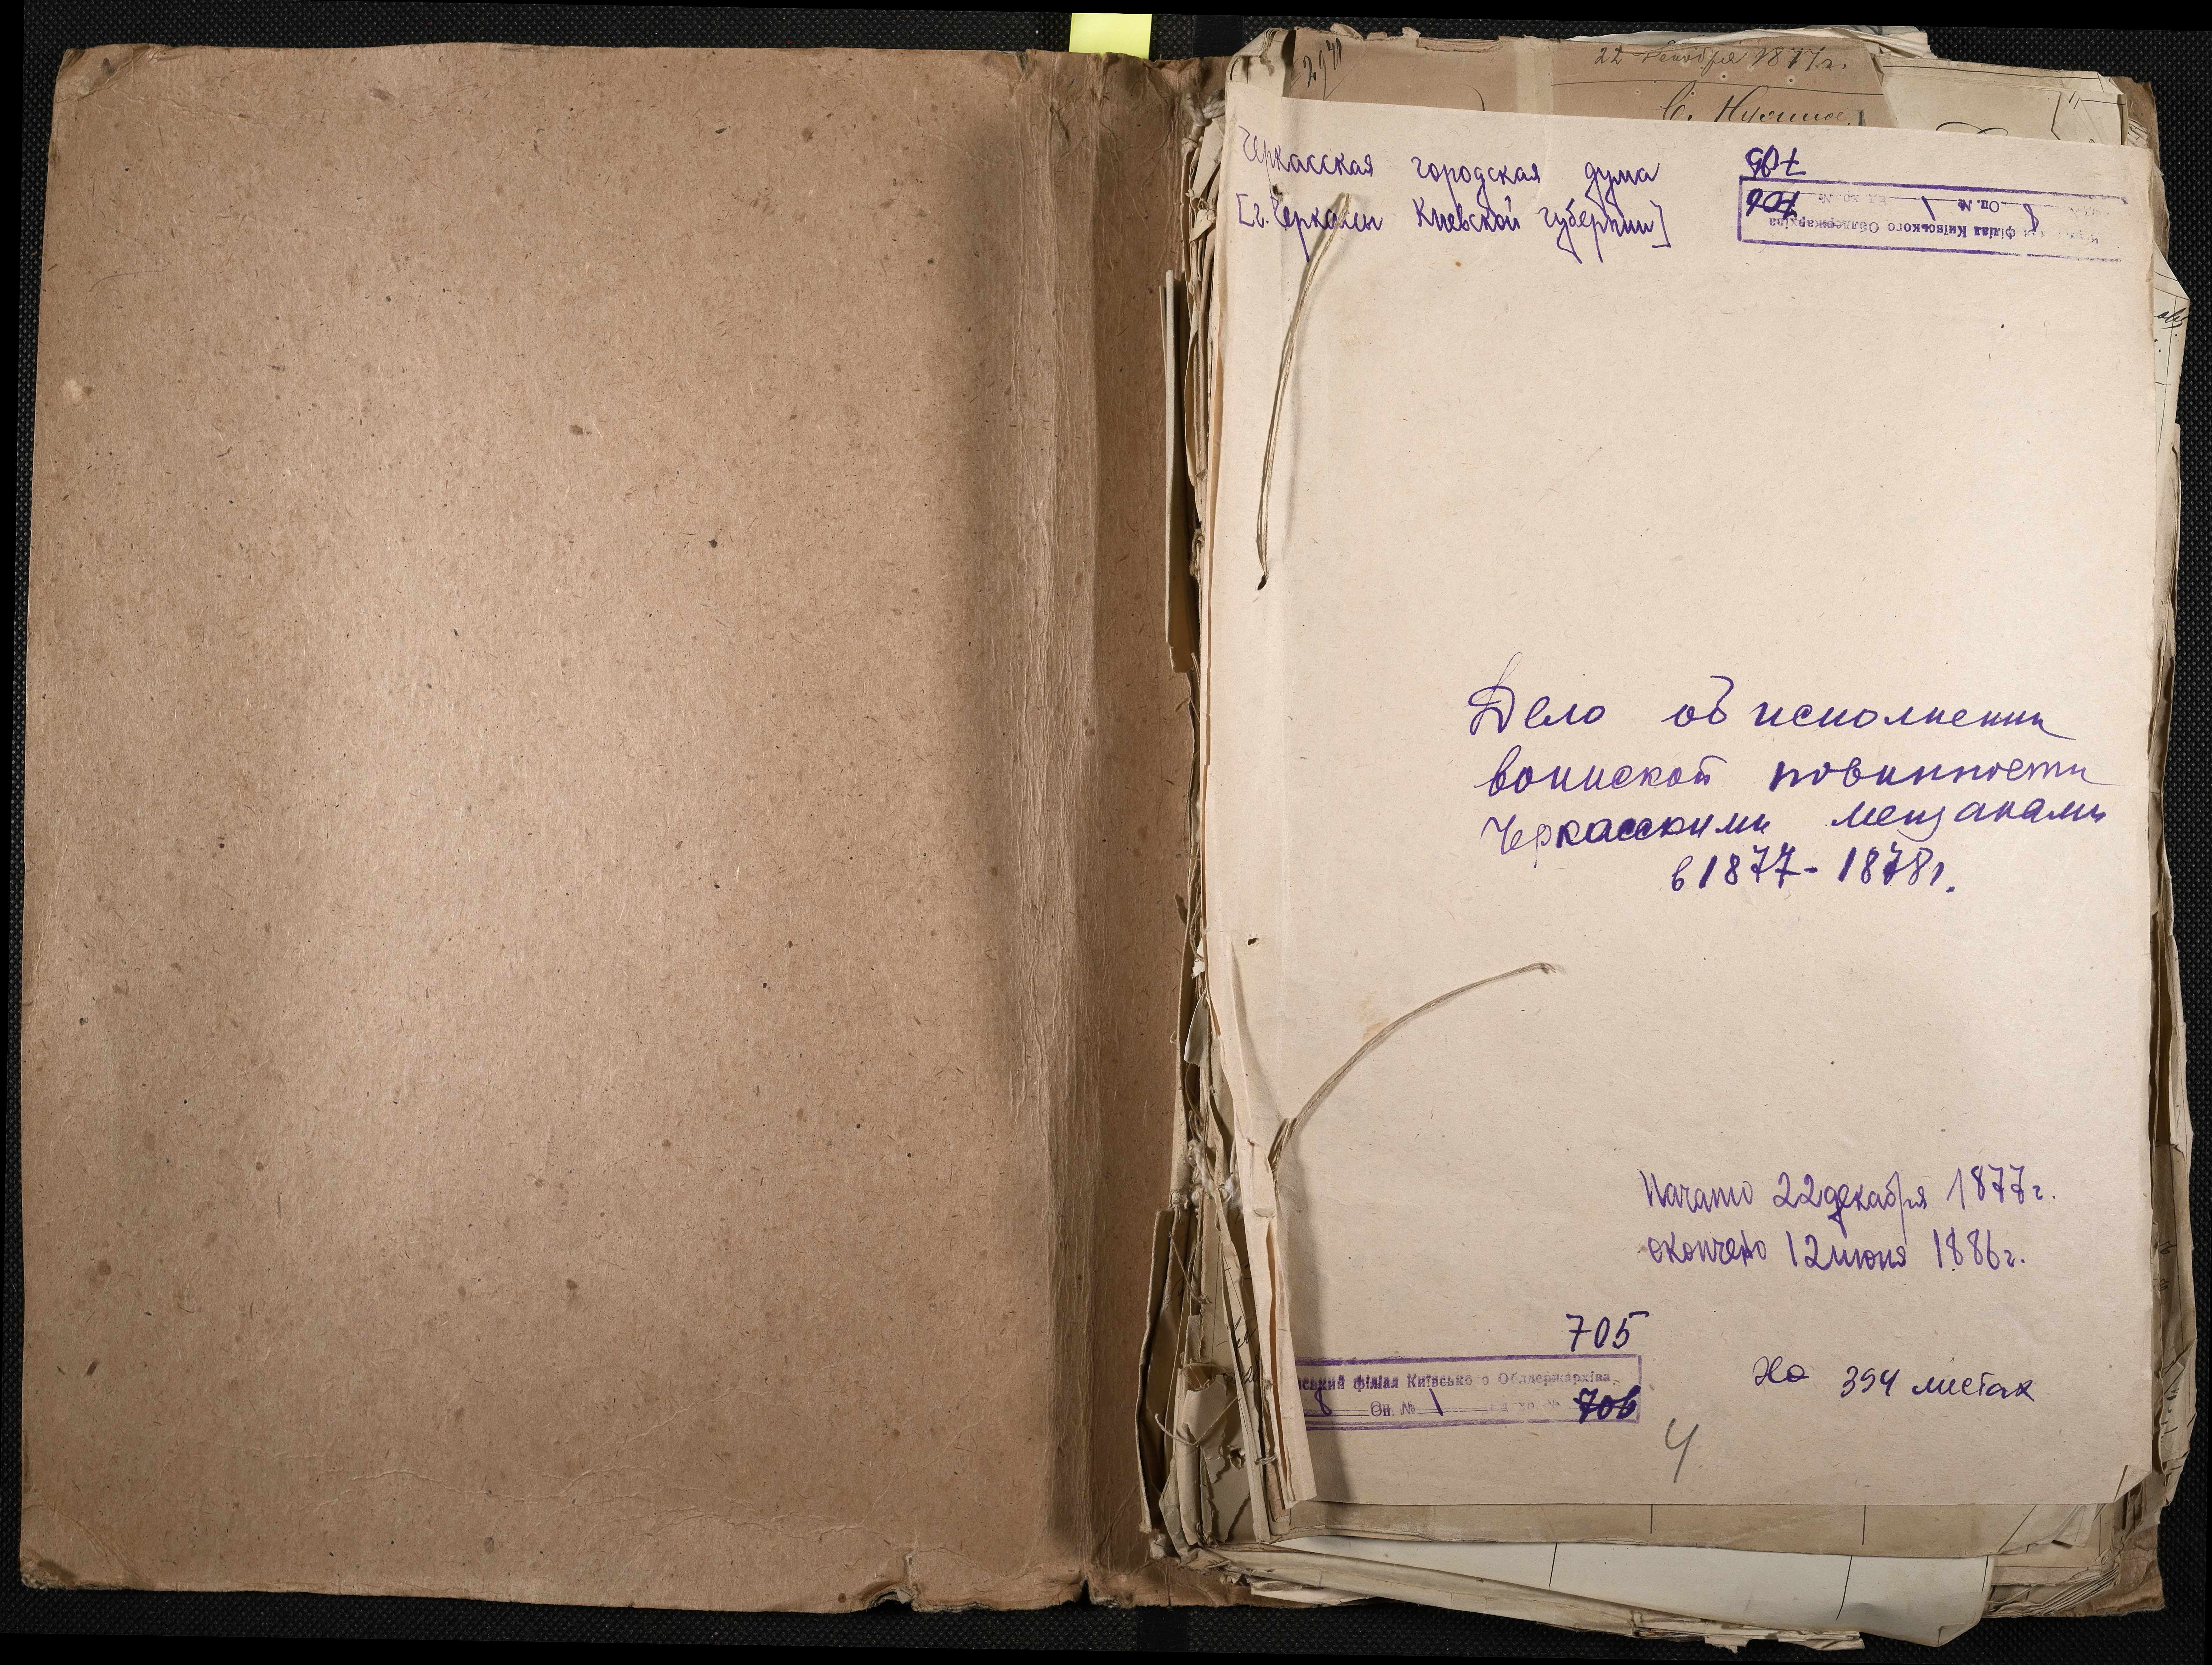 22 декабря 1877 г.
Черкасская городская дума
[г. Черкассы Киевской губернии]
705
706
Оп. № 1
філіал Київського Облдержархіва
8
Дело об исполнении
воинской повинности
Черкасскими мещанами
в 1877-1878г.
Начато 22 декабря 1877г.
окончено 12 июня 1886г.
705
ський філіал Київського Облдержархіва
8 Оп. № 1 од. хр. № 706
На 394 листах
4